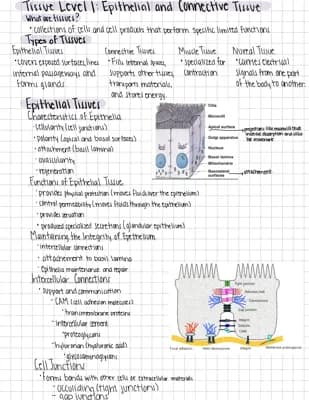 Tissue Level 1: Epithelial and Connective Tissue
What are tissues?
• collections of cells and cell products that perform specific limited functions
Types of Tissues
Epithelial Tissues
• covers exposed surfaces, lines internal passageways and forms glands
Connective Tissues
• Fills internal spaces, supports other tissues, transport materials, and stores energy.
Muscle Tissue
• specialized for contraction
Nervous Tissue
• carries electrical signals from one part of the body to another
Epithelial Tissues
Characteristics of Epithelia
- cellularity (cell junctions)
- polarity (apical and basal surfaces)
- attachment (basal lamina)
- avascularity
- regeneration
Cilia
Microvilli
Apical surface
Golgi apparatus
Nucleus
Basal lamina
Mitochondria
Basolateral surfaces
Functions of Epithelial Tissue
• provides physical protection (moves fluids over the epithelium)
• control permeability (moves fluids through the epithelium)
• provides sensation
• produces specialized secretions (glandular epithelium)
Maintaining the Integrity of Epithelium
• intercellular connections
• attachment to basal lamina
• Epithelia maintenance and repair
Intercellular Connections
• Support and communication
- CAM (cell adhesion molecules)
• transmembrane proteins
- intercellular cement
• proteoglycans
- hyaluronan (hyaluronic acid)
• glycosaminoglycans
Cell Junctions
• Forms bonds with other cells or extracellular materials
- occluding (tight junctions)
- gap junctions
Tight junction
Gap junction
Focal adhesion
Hemidesmosome
Integrin